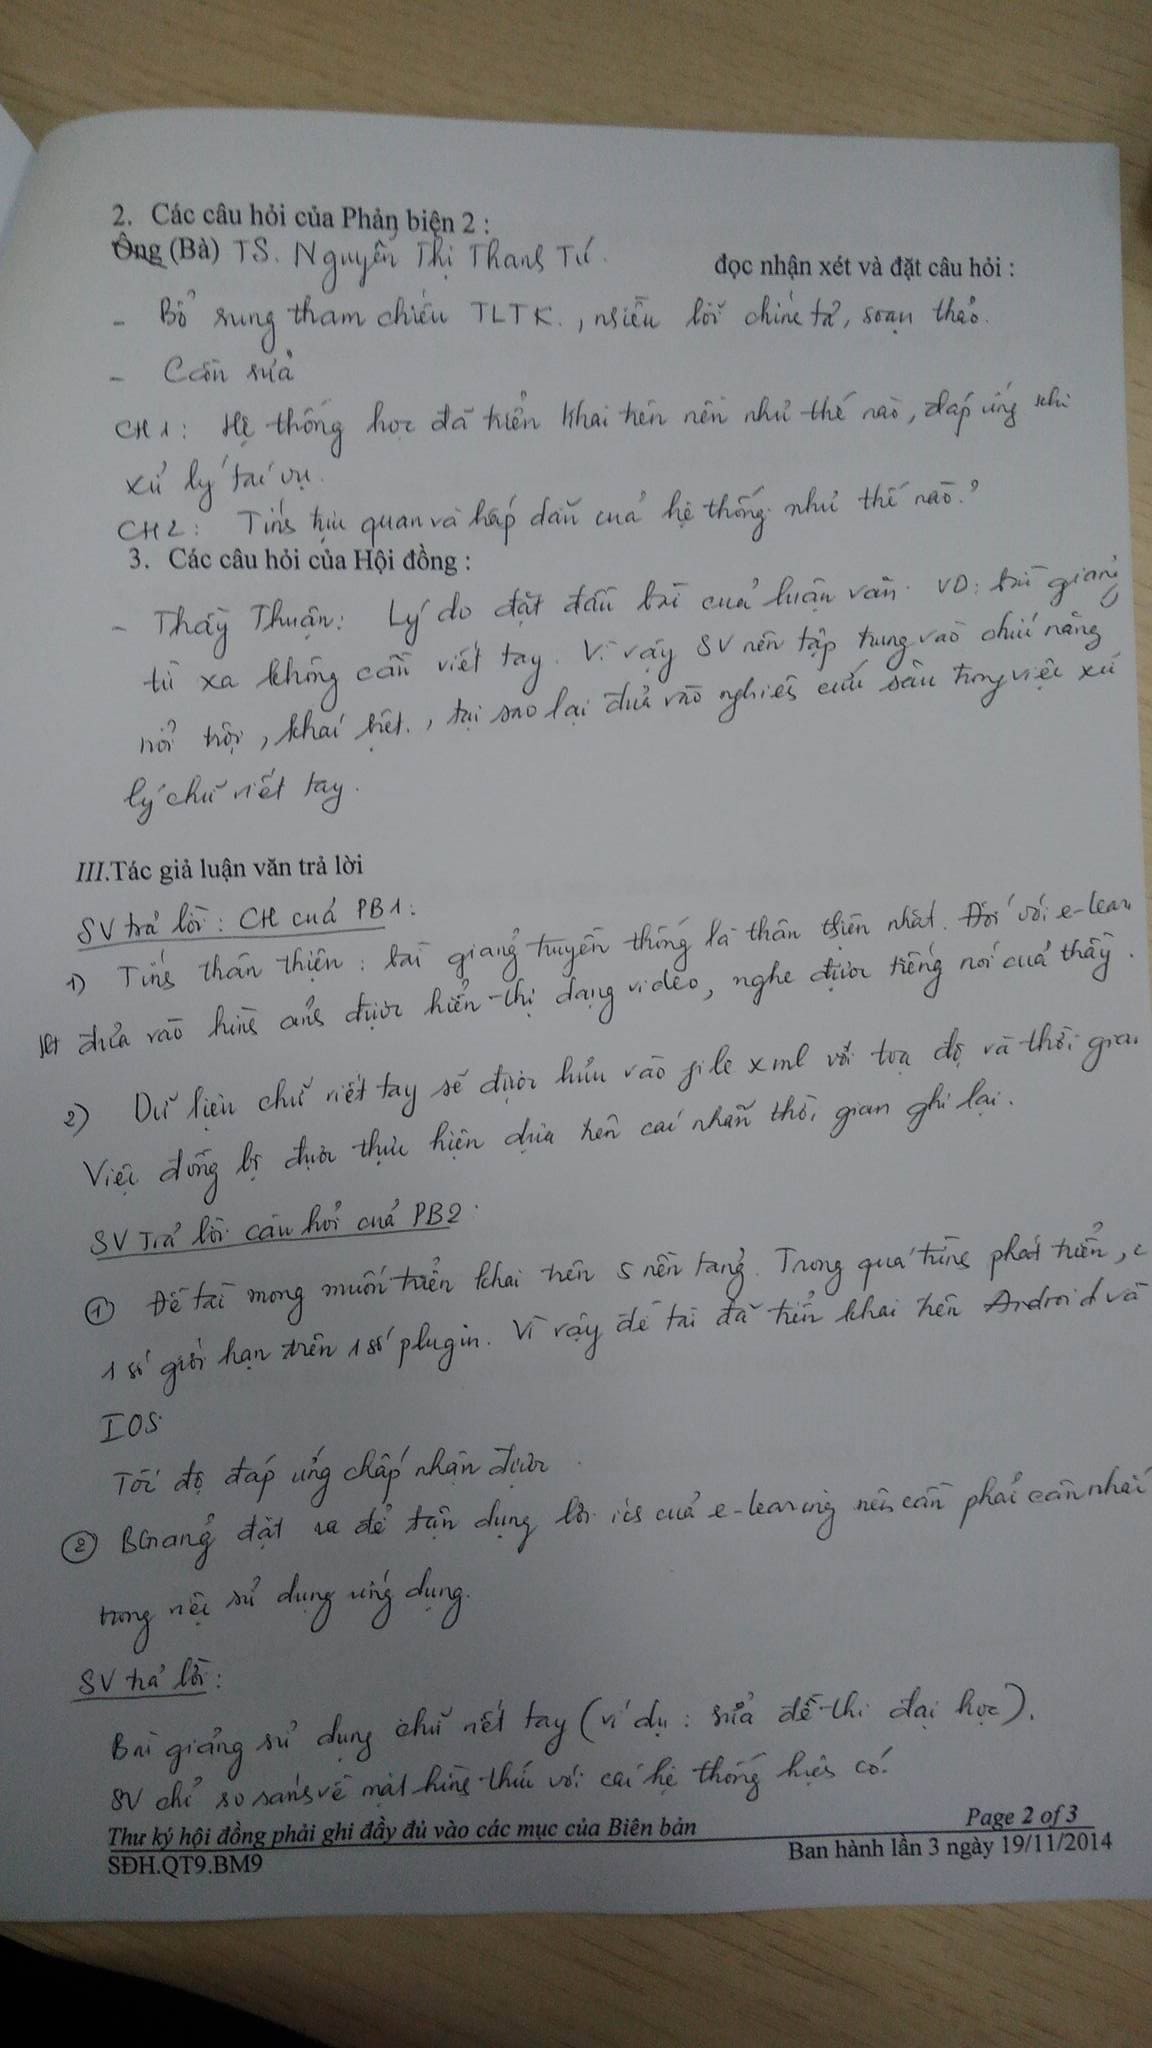 2. Các câu hỏi của Phản biện 2 :
Ông (Bà) TS. Nguyễn Thị Thanh Tú. đọc nhận xét và đặt câu hỏi :
- Bổ sung tham chiếu TLTK., nhiều lỗi chính tả, soạn thảo.
- Cần sửa
CH1: Hệ thống học đã triển khai trên nền như thế nào, đáp ứng khi
xử lý tác vụ.
CH2: Tính trực quan và hấp dẫn của hệ thống như thế nào?
3. Các câu hỏi của Hội đồng :
- Thầy Thuận: Lý do đặt đầu bài của luận văn. VD: bài giảng
từ xa không cần viết tay. Vì vậy SV nên tập trung vào chức năng
nổi trội, khác biệt., tại sao lại đưa vào nghiên cứu sâu trong việc xử
lý chữ viết tay.
III.Tác giả luận văn trả lời
SV trả lời: CH của PB1:
1) Tính thân thiện: bài giảng truyền thống là thân thiện nhất. Đối với e-lear
đưa vào hình ảnh được hiển thị dạng video, nghe được tiếng nói của thầy.
2) Dữ liệu chữ viết tay sẽ được lưu vào file xml với toạ độ và thời gian
Việc đồng bộ được thực hiện dựa trên các nhãn thời gian ghi lại.
SV Trả lời câu hỏi của PB2
① Đề tài mong muốn triển khai trên 5 nền tảng. Trong quá trình phát triển, c
1 số giới hạn trên 1 số plugin. Vì vậy đề tài đã triển khai trên Android và
IOS.
Tốc độ đáp ứng chấp nhận được.
② BGiảng đặt ra để tận dụng lợi ích của e-learning nên cần phải cân nhắc
trong việc sử dụng ứng dụng.
SV trả lời:
Bài giảng sử dụng chữ viết tay (ví dụ: sửa đề thi đại học).
SV chỉ so sánh về mặt hình thức với các hệ thống hiện có.
Thư ký hội đồng phải ghi đầy đủ vào các mục của Biên bản Page 2 of 3
SĐH.QT9.BM9 Ban hành lần 3 ngày 19/11/2014